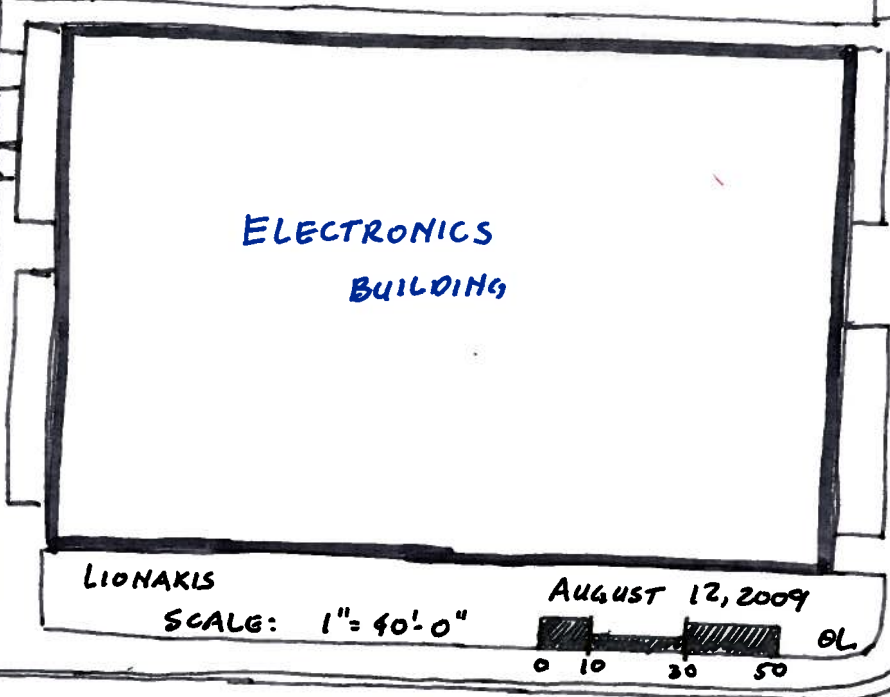 ELECTRONICS
BUILDING
LIONAKIS
AUGUST 12, 2009
SCALE: 1"= 40'-0"
0 10 30 50